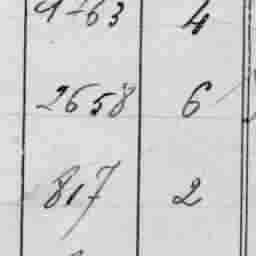 1763 4
2658 6
817 2